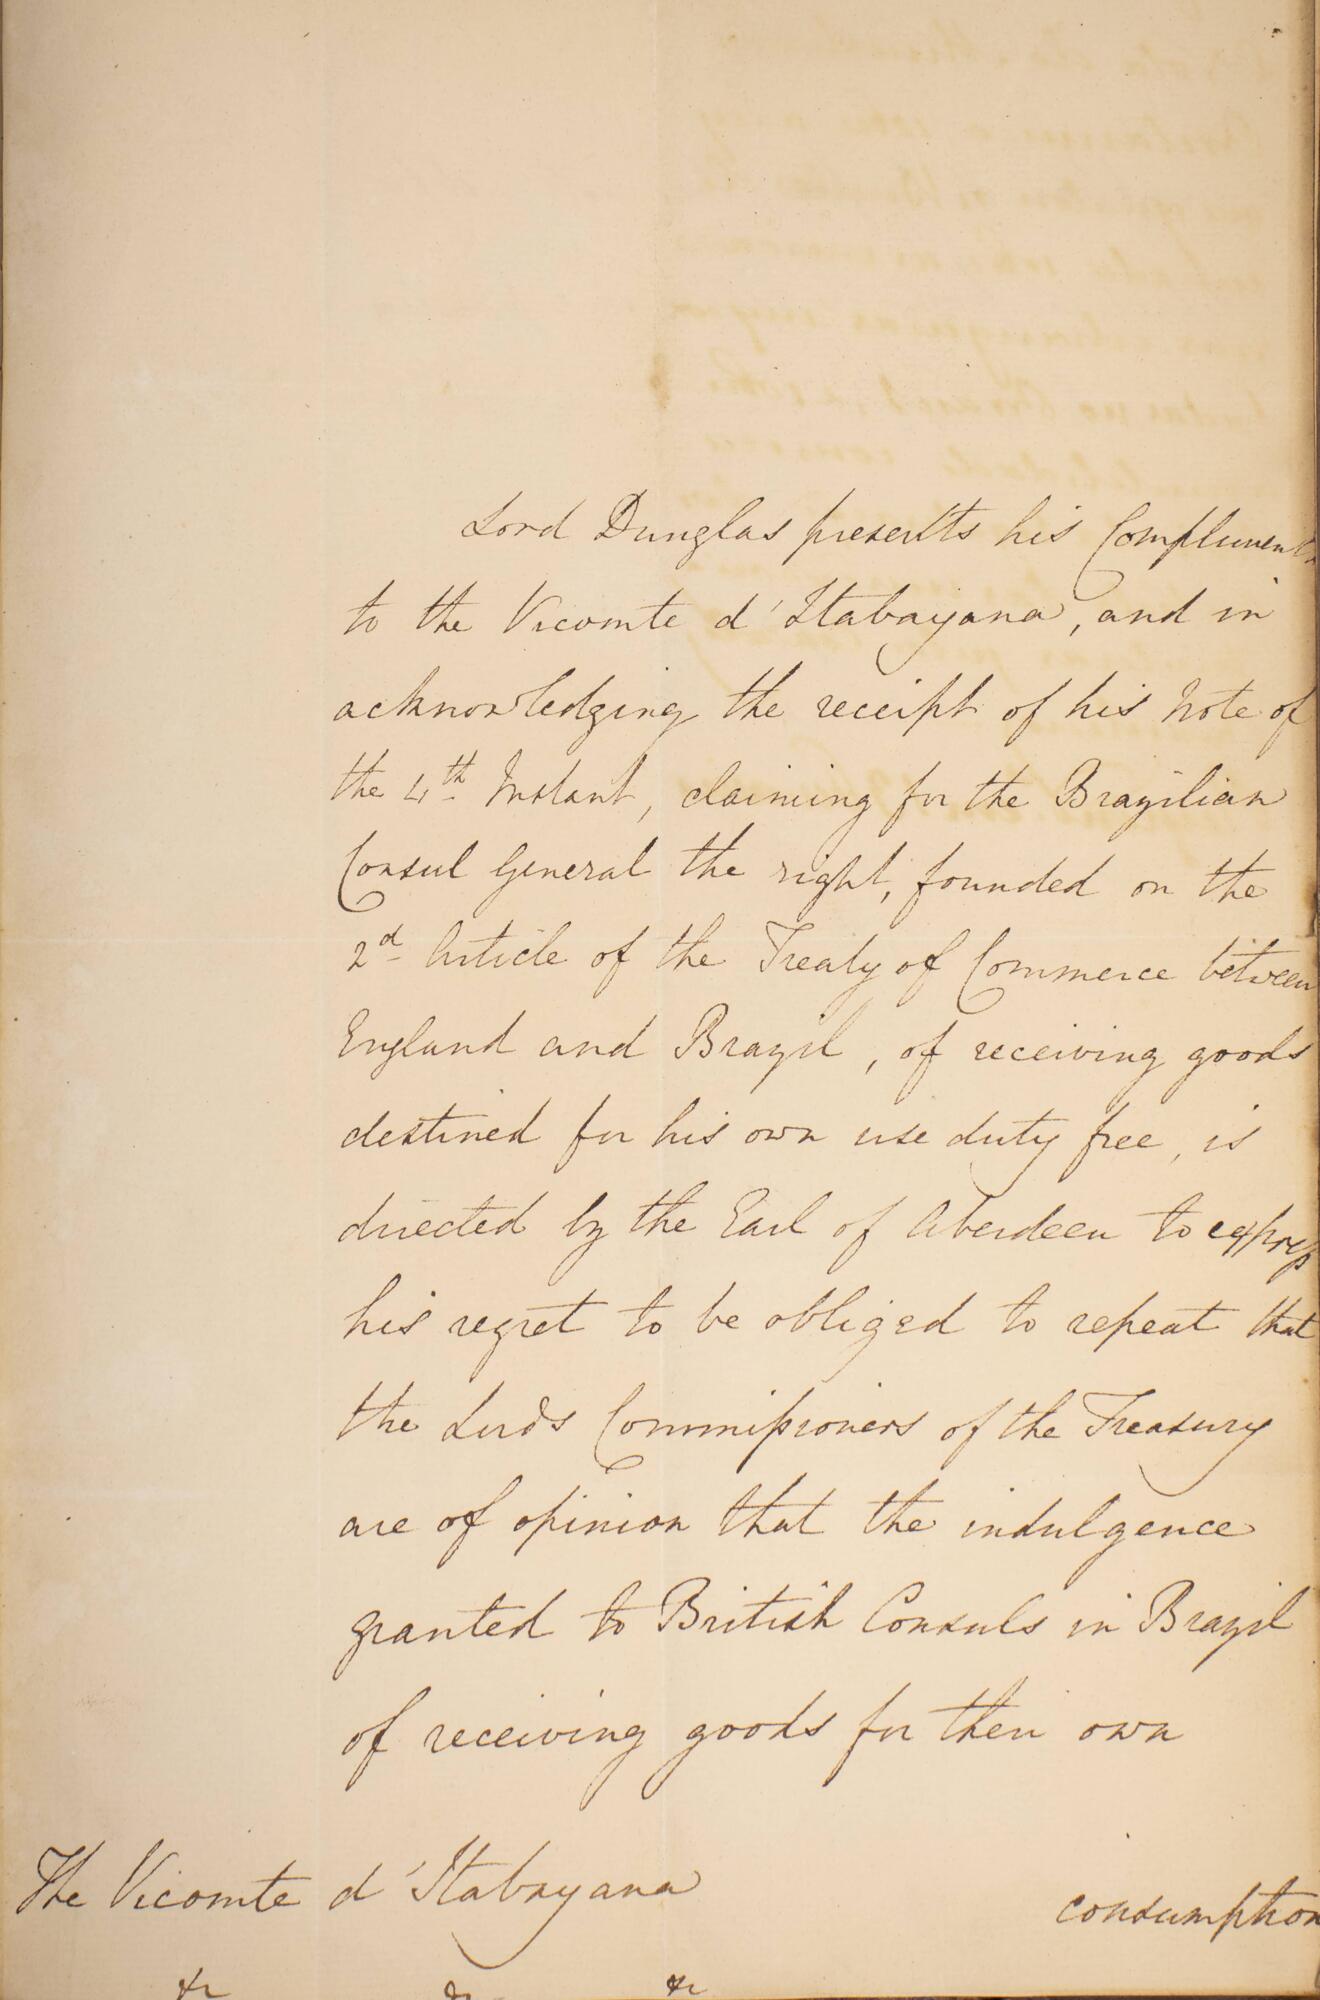 Lord Dunglas presents his Compliments
to the Vicomte d'Itabayana, and in
acknowledging the receipt of his Note of
the 4th Instant, claiming for the Brazilian
Consul General the right, founded on the
2d Article of the Treaty of Commerce between
England and Brazil, of receiving goods
destined for his own use duty free, is
directed by the Earl of Aberdeen to express
his regret to be obliged to repeat that
the Lords Commissioners of the Treasury
are of opinion that the indulgence
granted to British Consuls in Brazil
of receiving goods for their own
The Vicomte d'Itabayana
consumption
&c &c &c